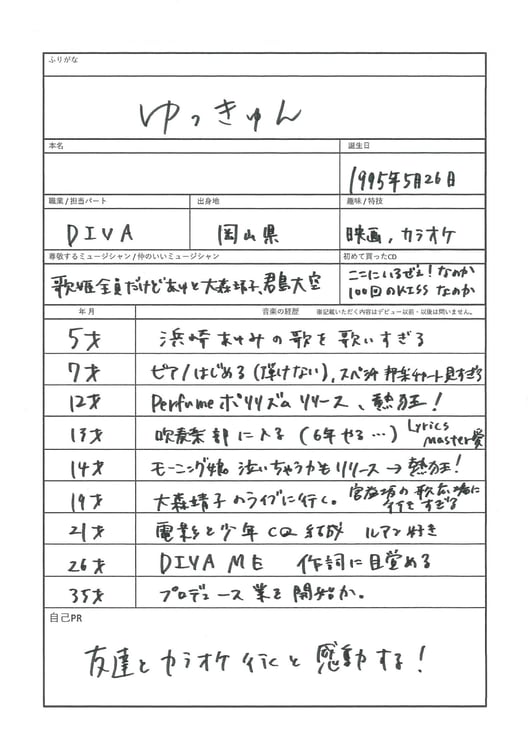 ふりがな
ゆっきゅん
本名
誕生日
1995年5月26日
職業 / 担当パート
出身地
趣味 / 特技
DIVA
岡山県
映画,カラオケ
尊敬するミュージシャン / 仲のいいミュージシャン
初めて買ったCD
歌姫全員だけどあゆと大森靖子、君島大空
ここにいるぜぇ!なのか
100回のKISSなのか
年 月
音楽の経歴
※記載いただく内容はデビュー以前・以後は問いません。
5才
浜崎あゆみの歌を歌いすぎる
7才
ピアノはじめる(弾けない),スペシャ 邦楽チャート見すぎる
12才
Perfume ポリリズム リリース、熱狂!
13才
吹奏楽部に入る(6年やる…)
Lyrics Master愛
14才
モーニング娘 泣いちゃうかも リリース→熱狂!
19才
大森靖子のライブに行く。
宮益坂の歌広場に
行きすぎる
21才
電影と少年CQ結成 ルアン好き
26才
DIVA ME 作詞に目覚める
35才
プロデュース業を開始か。
自己PR
友達とカラオケ行くと感動する!